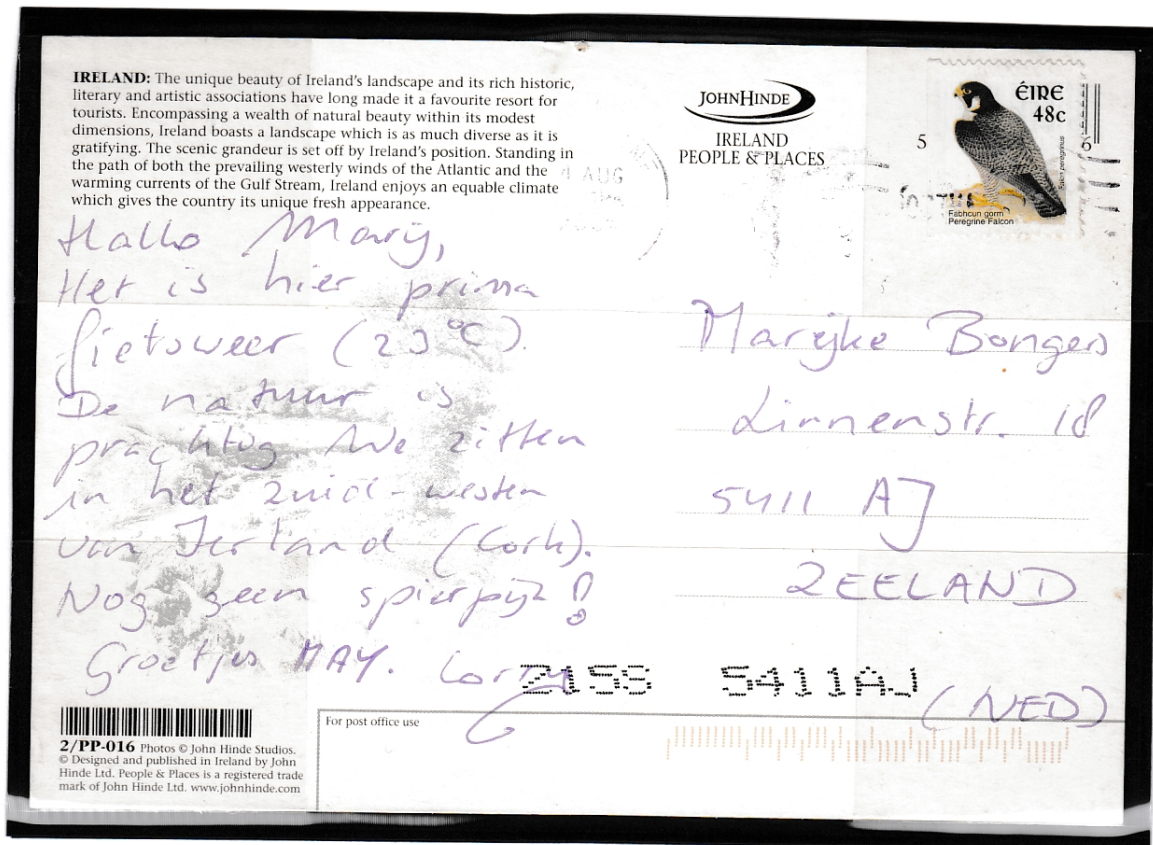 IRELAND: The unique beauty of Ireland's landscape and its rich historic,
literary and artistic associations have long made it a favourite resort for
tourists. Encompassing a wealth of natural beauty within its modest
dimensions, Ireland boasts a landscape which is as much diverse as it is
gratifying. The scenic grandeur is set off by Ireland's position. Standing in
the path of both the prevailing westerly winds of the Atlantic and the
warming currents of the Gulf Stream, Ireland enjoys an equable climate
which gives the country its unique fresh appearance.
JOHNHINDE
IRELAND
PEOPLE & PLACES
ÉIRE
48c
5
Falco peregrinus
Fabhcun gorm
Peregrine Falcon
AUG
Hallo Marij,
Het is hier prima
fietsweer (23°C).
De natuur is
prachtig. We zitten
in het zuid-westen
van Ierland (Cork).
Nog geen spierpijn!
Groetjes MAY.
Marijke Bongers
Linnenstr. 18
5411 AJ
ZEELAND
(NED)
2155 5411AJ
For post office use
2/PP-016 Photos © John Hinde Studios.
© Designed and published in Ireland by John
Hinde Ltd. People & Places is a registered trade
mark of John Hinde Ltd. www.johnhinde.com